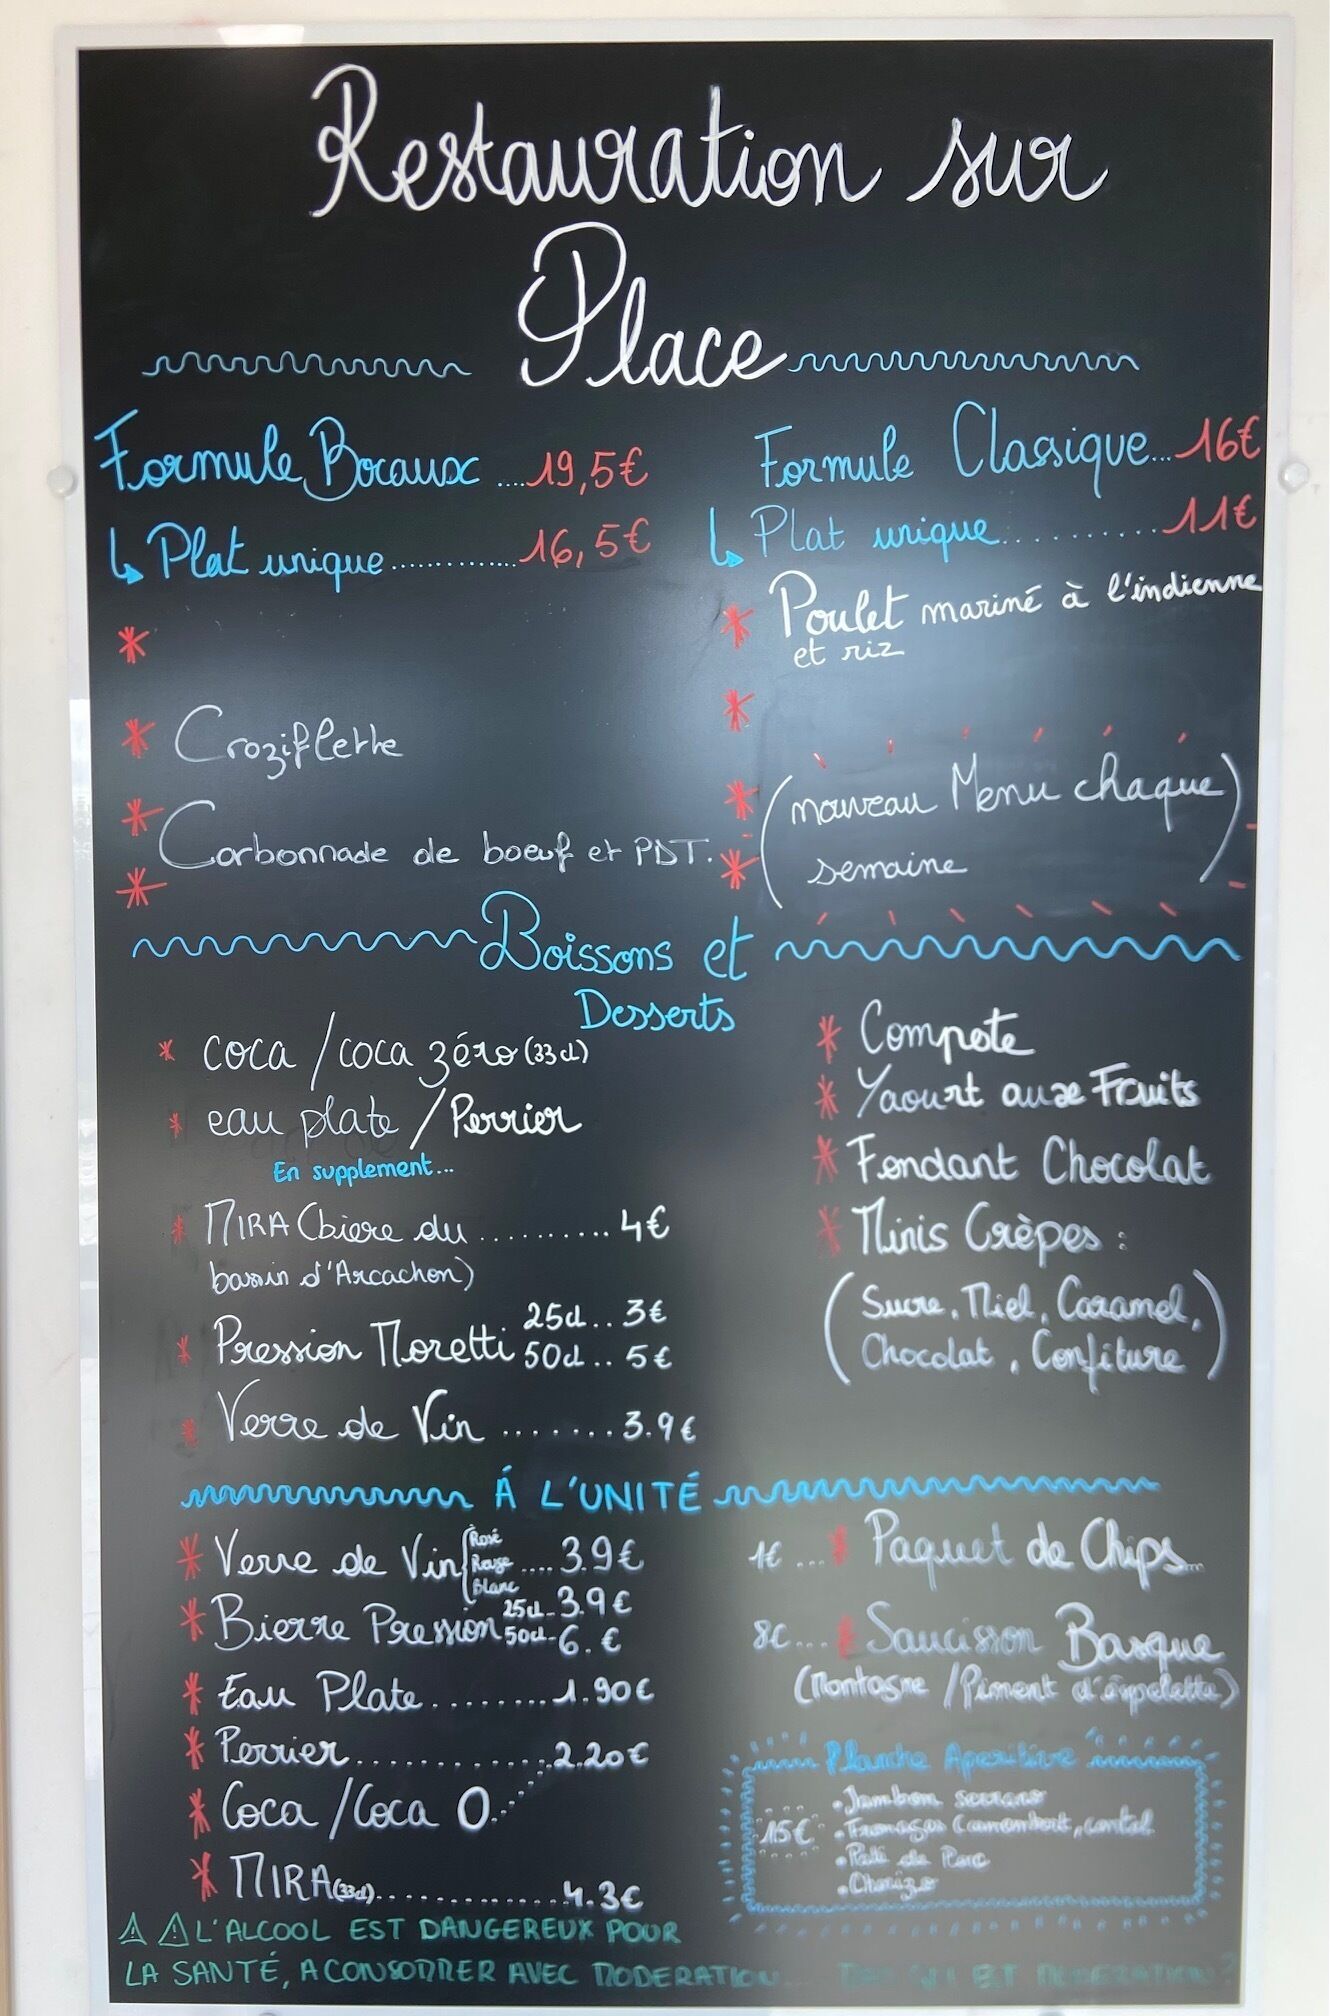 Restauration sur
Place
Formule Bocaux ....19,5€
↳ Plat unique ............... 16,5€
* Croziflette
* Carbonnade de boeuf et PDT.
Formule Classique...16€
↳ Plat unique..........11€
* Poulet mariné à l'indienne
et riz
(nouveau Menu chaque
semaine)
Boissons et
Desserts
* coca / coca zéro (33cl)
* eau plate / Perrier
En supplement...
* MIRA (biere du ..........4€
bassin d'Arcachon)
* Pression Moretti 25cl.. 3€
50cl.. 5€
* Verre de Vin .......3.9€
* Compote
* Yaourt aux Fruits
* Fondant Chocolat
* Minis Crèpes :
(Sucre, Miel, Caramel,
Chocolat, Confiture)
Á L'UNITÉ
* Verre de Vin { Rosé Rouge Blanc .... 3.9€
* Bierre Pression 25cl-3.9€
50cl-6.€
* Eau Plate........1.90€
* Perrier............2.20€
* Coca / Coca 0...
* MIRA (33cl)..............4.3€
1€ ... * Paquet de Chips...
8€... * Saucisson Basque
(Montagne / Piment d'éspelette)
Planche Aperitive
15€
• Jambon serrano
• Fromages Camembert, cantal
• Paté de Porc
• Chorizo
⚠ ⚠ L'ALCOOL EST DANGEREUX POUR
LA SANTÉ, A CONSOMMER AVEC MODERATION...